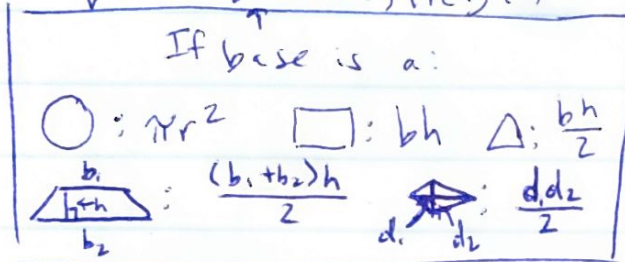 If base is a:
: πr² : bh : bh/2
b₁ h b₂ : (b₁+b₂)h/2 d₁ d₂ : d₁d₂/2